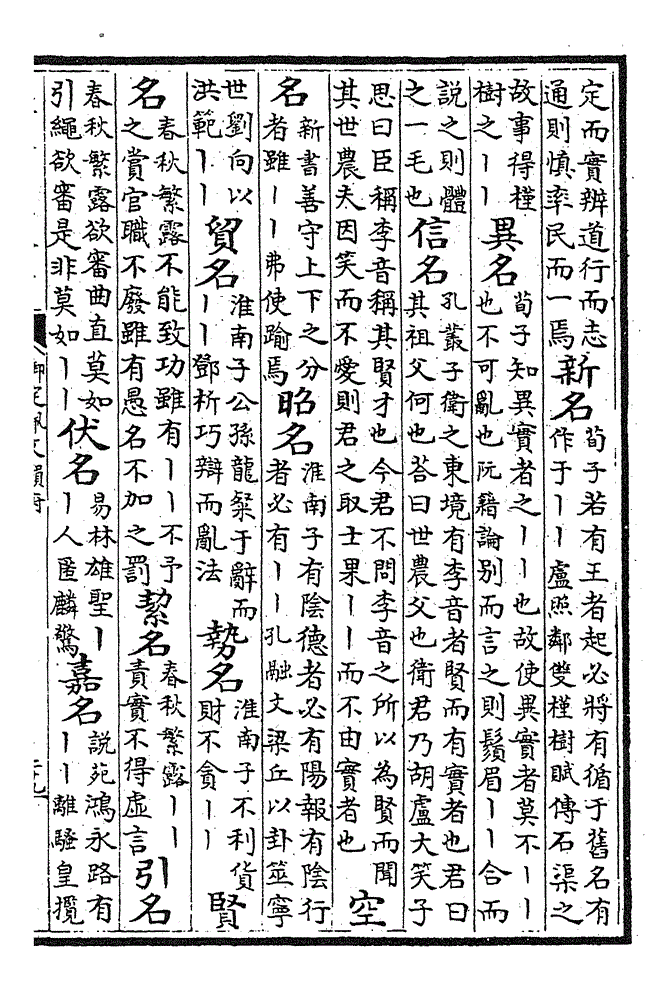 定而實辨道行而志通則慎率民而一焉新名荀子若有王者起必將有循于舊名有作于丨丨盧照鄰雙槿樹賦傳石渠之
故事得槿樹之丨丨異名荀子知異實者之丨丨也故使異實者莫不丨丨也不可亂也阮籍論别而言之則鬚眉丨丨合而
說之則體之一毛也信名孔叢子衛之東境有李音者賢而有實者也君曰其祖父何也荅曰世農父也衛君乃胡盧大笑子
思曰臣稱李音稱其賢才也今君不問李音之所以為賢而聞其世農夫因笑而不愛則君之取士果丨丨而不由實者也空
名新書善守上下之分者雖丨丨弗使踰焉昭名淮南子有陰德者必有陽報有陰行者必有丨丨孔融文梁丘以卦筮寧
世劉向以洪範丨丨貿名淮南子公孫龍粲于辭而丨丨鄧析巧辯而亂法勢名淮南子不利貨財不貪丨丨賢
名春秋繁露不能致功雖有丨丨不予之賞官職不廢雖有愚名不加之罰絜名春秋繁露丨丨責實不得虛言引名
春秋繁露欲審曲直莫如引繩欲審是非莫如丨丨伏名易林雄聖丨丨人匿麟驚嘉名說苑鴻永路有丨丨離騷皇攬